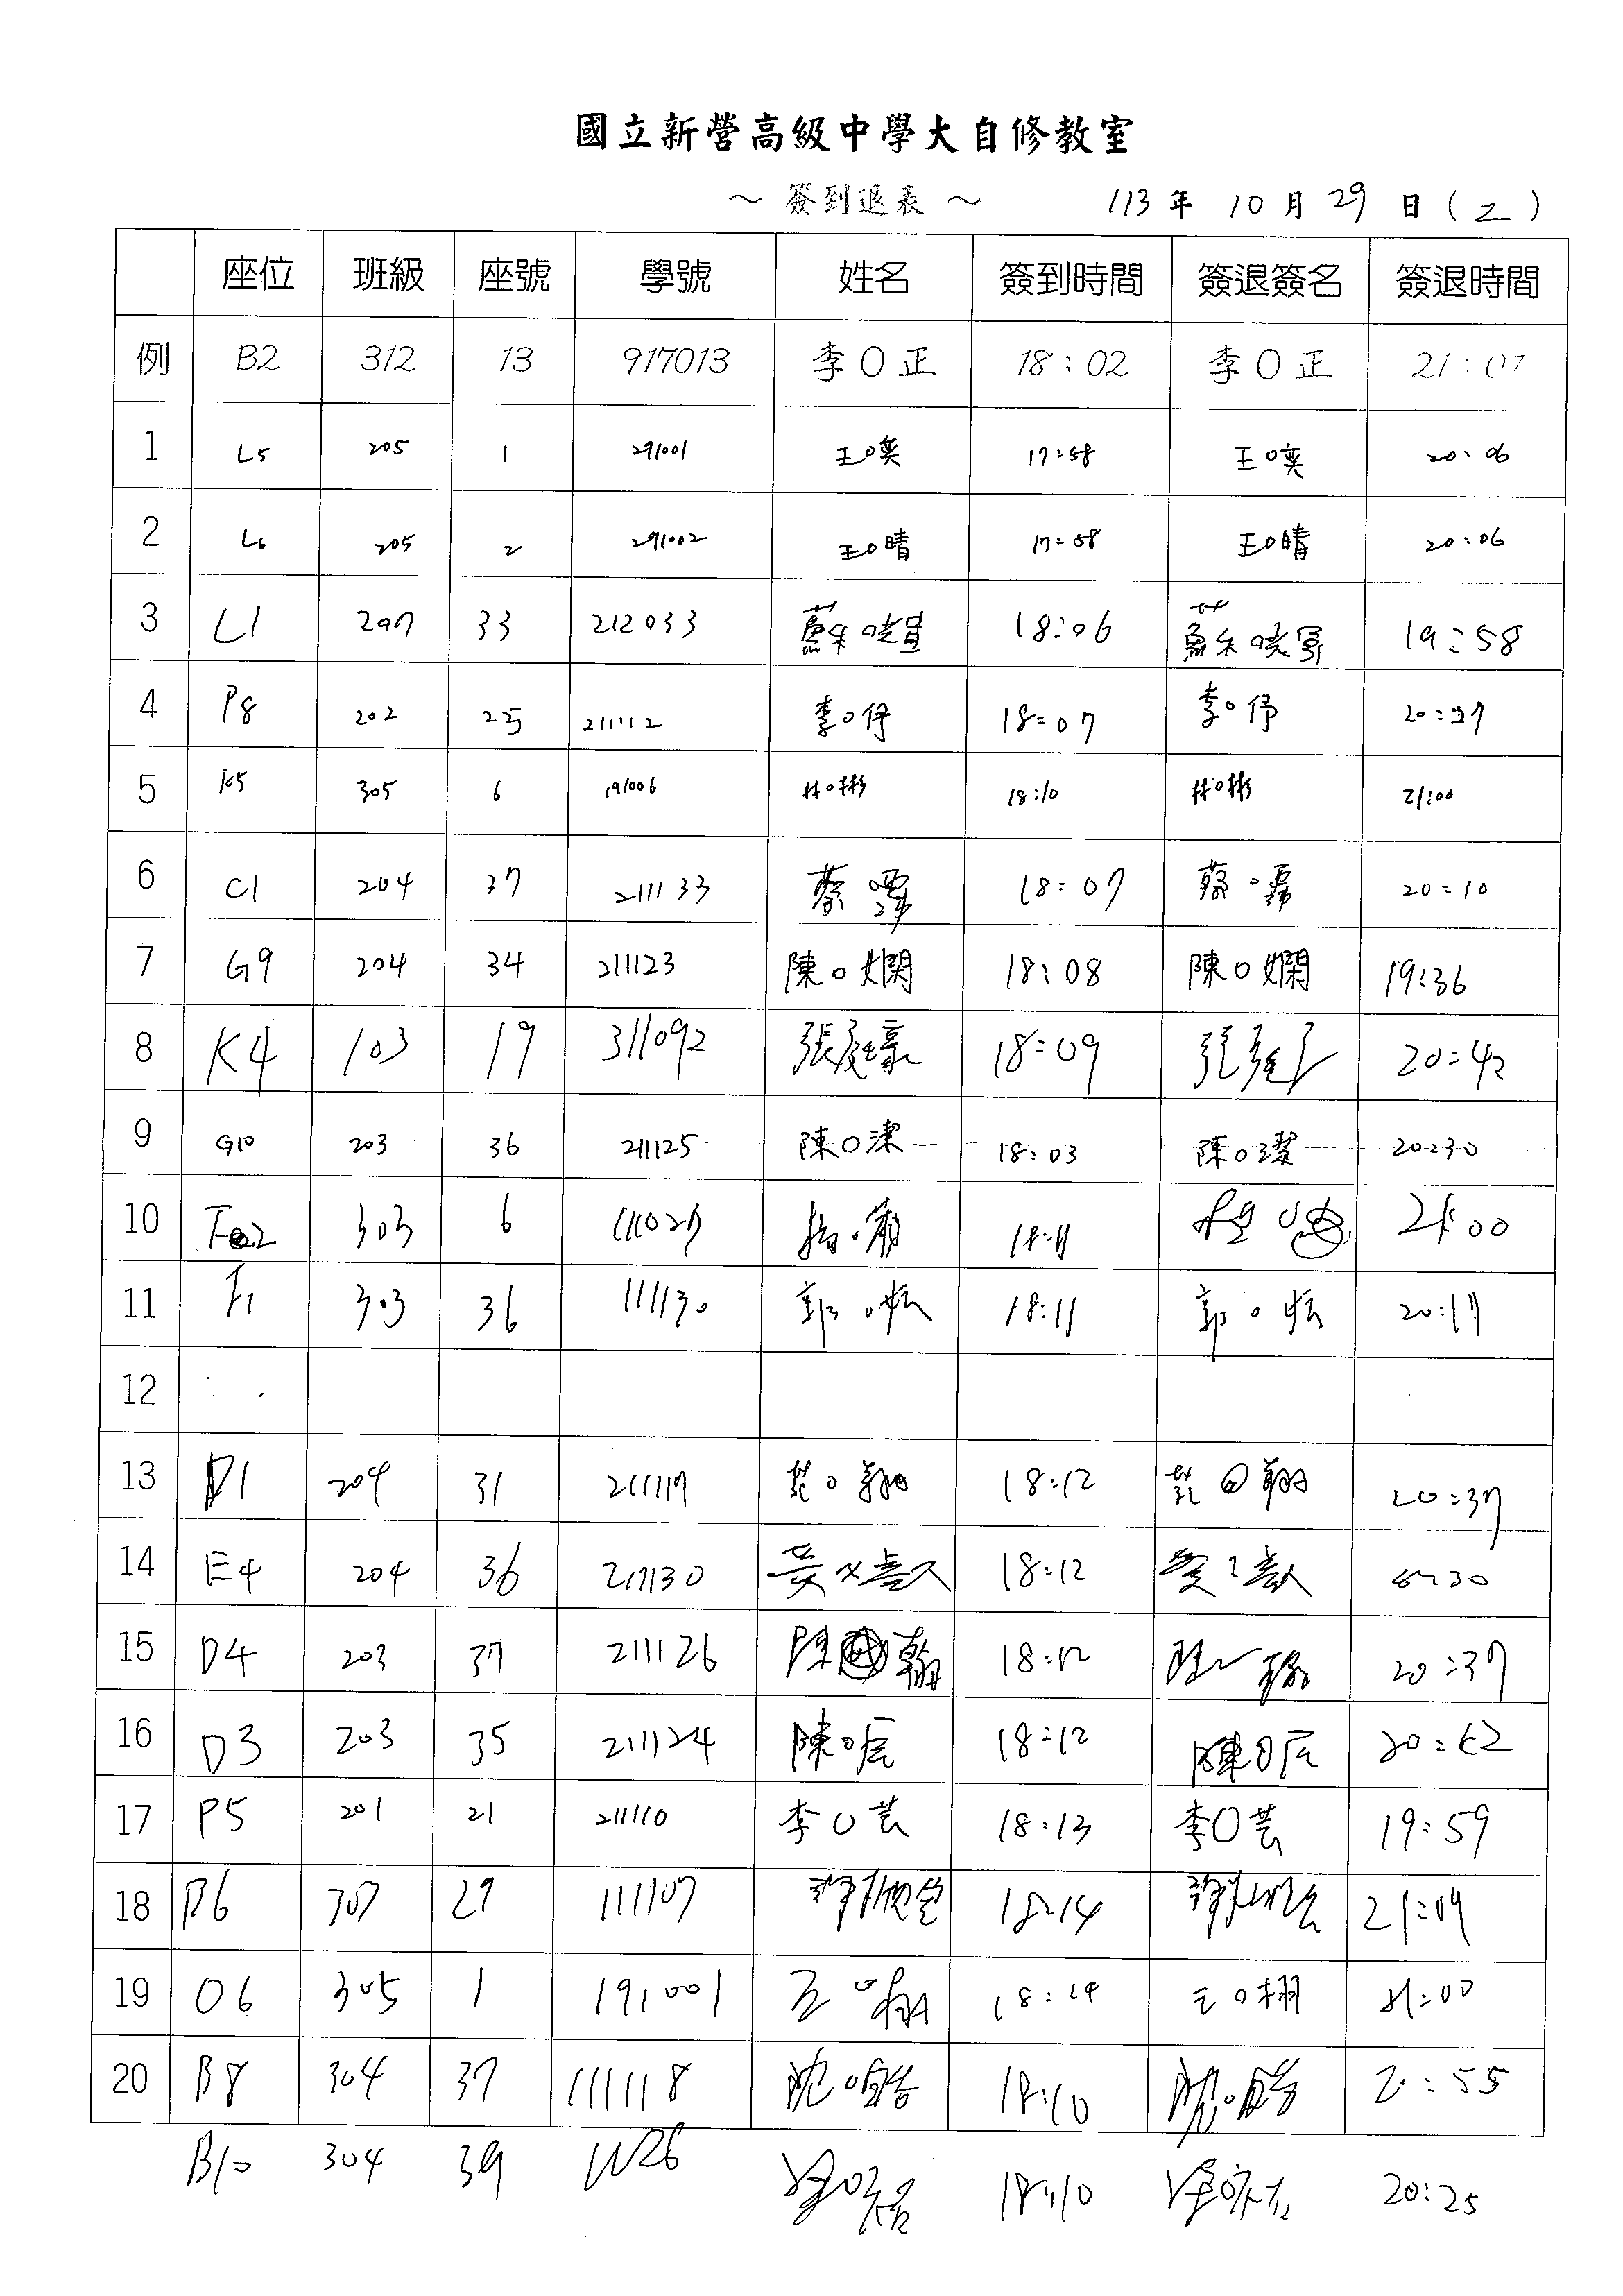 國立新營高級中學大自修教室
～ 簽到退表 ～ 113 年 10 月 29 日 ( 二 )
座位 班級 座號 學號 姓名 簽到時間 簽退簽名 簽退時間
例 B2 312 13 917013 李O正 18:02 李O正 21:07
1 L5 205 1 291001 王O奕 17:58 王O奕 20:06
2 L6 205 2 291002 王O晴 17:58 王O晴 20:06
3 L1 207 33 212033 蘇O 18:06 蘇O 19:58
4 P8 202 25 211112 李O伃 18:07 李O伃 20:37
5 K5 305 6 191006 林O彬 18:10 林O彬 21:00
6 C1 204 37 211133 蔡O霈 18:07 蔡O霈 20:10
7 G9 204 34 211123 陳O嫻 18:08 陳O嫻 19:36
8 K4 103 19 311092 張庭豪 18:09 20:42
9 G10 203 36 211125 陳O潔 18:03 陳O潔 20:30
10 F2 303 6 111027 18:11 21:00
11 F1 303 36 111130 郭O妘 18:11 郭O妘 20:17
12
13 D1 204 31 211117 O翔 18:12 O翔 20:37
14 E4 204 36 211130 黃 18:12 30
15 D4 203 37 211126 陳 翰 18:12 20:37
16 D3 203 35 211124 陳O辰 18:12 陳O辰 20:42
17 P5 201 21 211110 李O芸 18:13 李O芸 19:59
18 B6 307 27 111107 18:14 21:09
19 O6 305 1 191001 王O栩 18:14 王O栩 21:00
20 B8 304 37 111118 沈O皓 18:10 沈O皓 20:55
B10 304 39 18:10 20:25